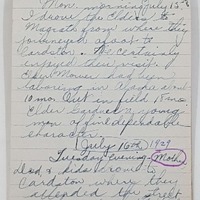 Mon. morning July 15th
I drove the Elders to
Magrath from where they
journeyed afoot to
Cardston. We certainly
enjoyed their visit.
Elder Mower had been
laboring in Alberta about
10 mo. Out in field 18 mo.
Elder young
man of indefatigable
character.
July 16th 1929
Tuesday evening Moth
Dad & kids drove to
Cardston where they
attended the